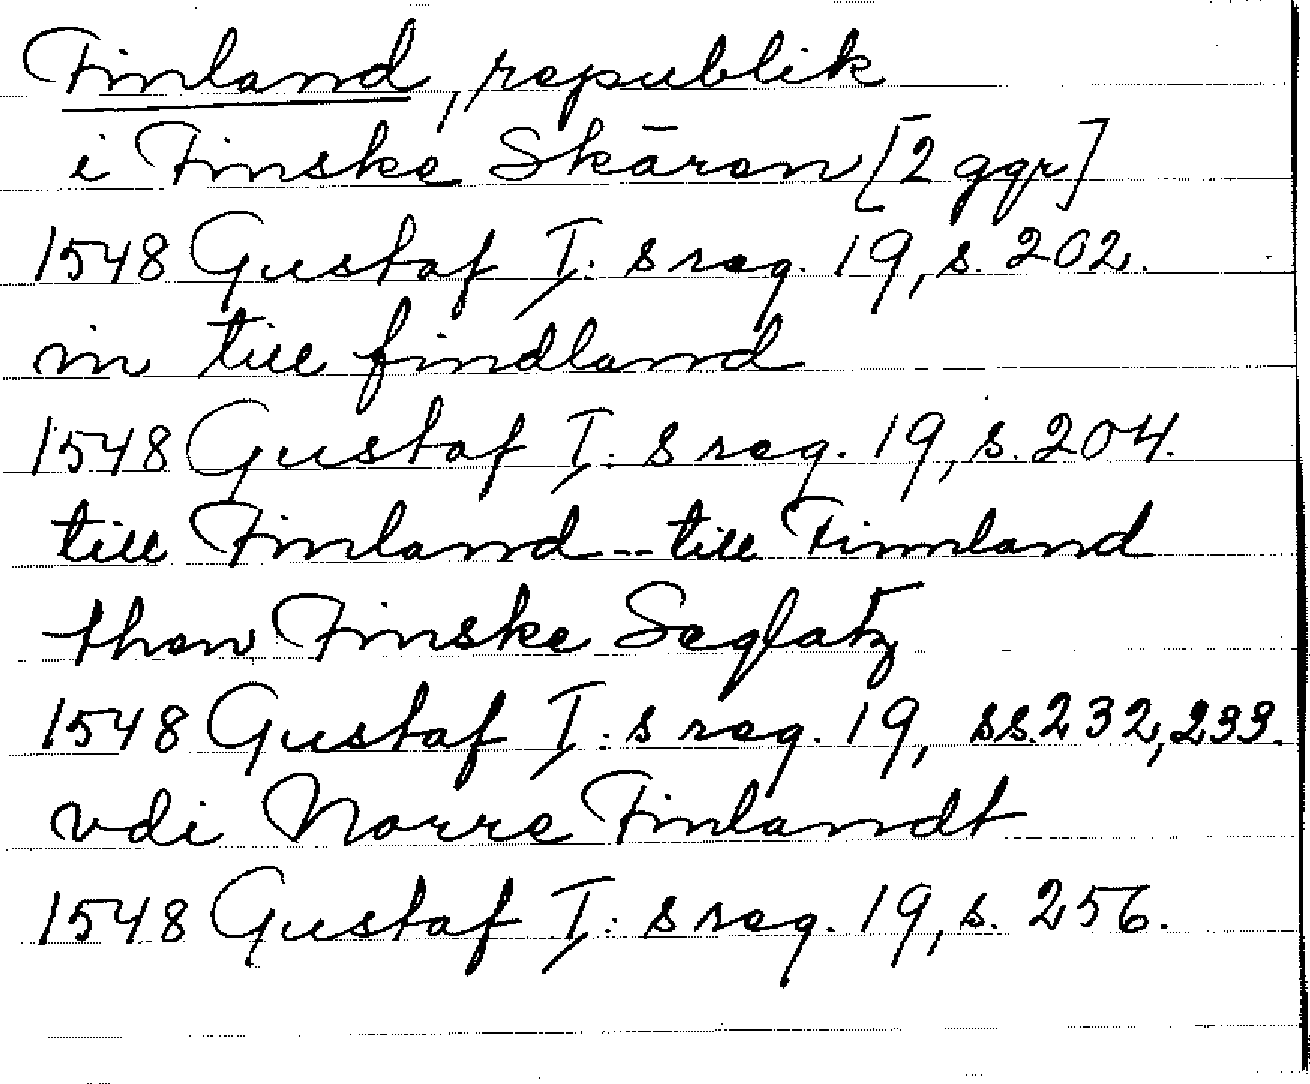 Finland, republik
i Finske Skären [2 ggr]
1548 Gustaf I:s reg. 19, s. 202.
in till findland
1548 Gustaf I:s reg. 19, s. 204.
till Finland -- till Finnland
then Finske Seglatz
1548 Gustaf I:s reg. 19, ss. 232, 233.
vdi Norre Finlandt
1548 Gustaf I:s reg. 19, s. 256.